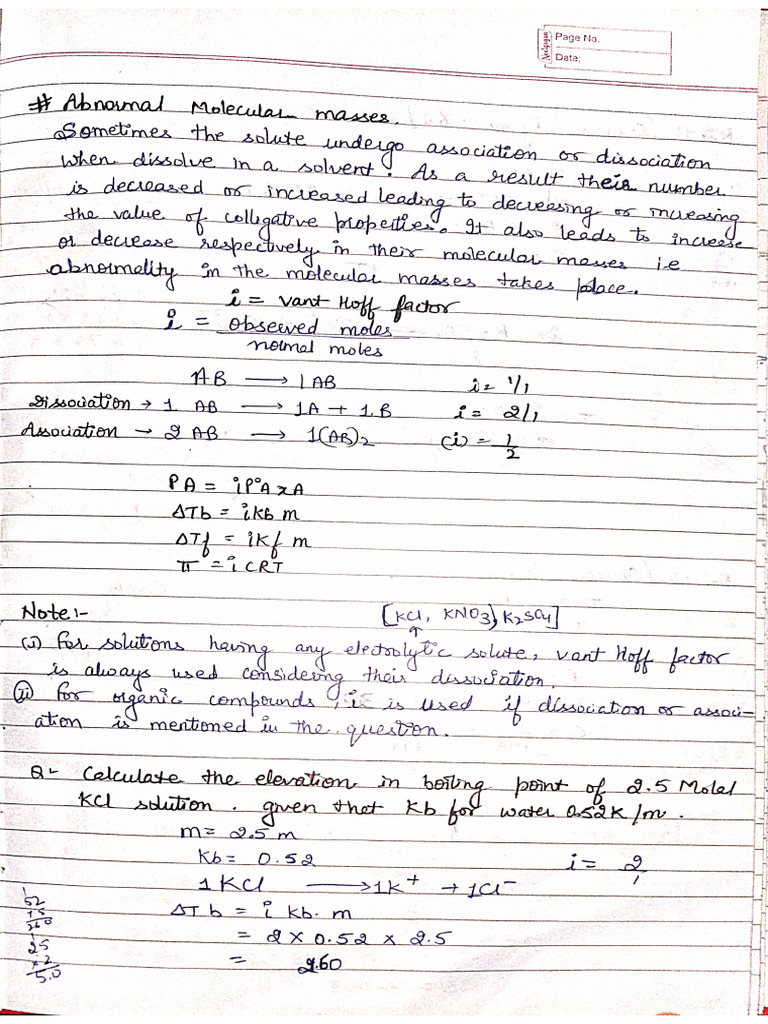 Page No.
Date:
# Abnormal Molecular masses.
Sometimes the solute undergo association or dissociation
when dissolve in a solvent. As a result their number
is decreased or increased leading to decreasing or increasing
the value of colligative properties. It also leads to increase
or decrease respectively in their molecular masses i.e
abnormality in the molecular masses takes place.
i = vant Hoff factor
i = observed moles
normal moles
1AB ⟶ 1AB i = 1/1
Dissociation → 1 AB ⟶ 1A + 1B i = 2/1
Association → 2 AB ⟶ 1(AB)2 (i) = 1/2
PA = iP°AxA
ΔTb = ikb m
ΔTf = iKf m
π = iCRT
Note:- [KCl, KNO3, K2SO4]
(i) for solutions having any electrolytic solute, vant Hoff factor
is always used considering their dissociation.
(ii) for organic compounds, i is used if dissociation or associ-
ation is mentioned in the question.
Q- Calculate the elevation in boiling point of 2.5 Molal
KCl solution. given that Kb for water 0.52K/m.
m = 2.5 m
Kb = 0.52 i = 2/1
1 KCl ⟶ 1K+ + 1Cl-
ΔTb = i kb. m
= 2 x 0.52 x 2.5
= 2.60
52
260
25
x 2
5.0